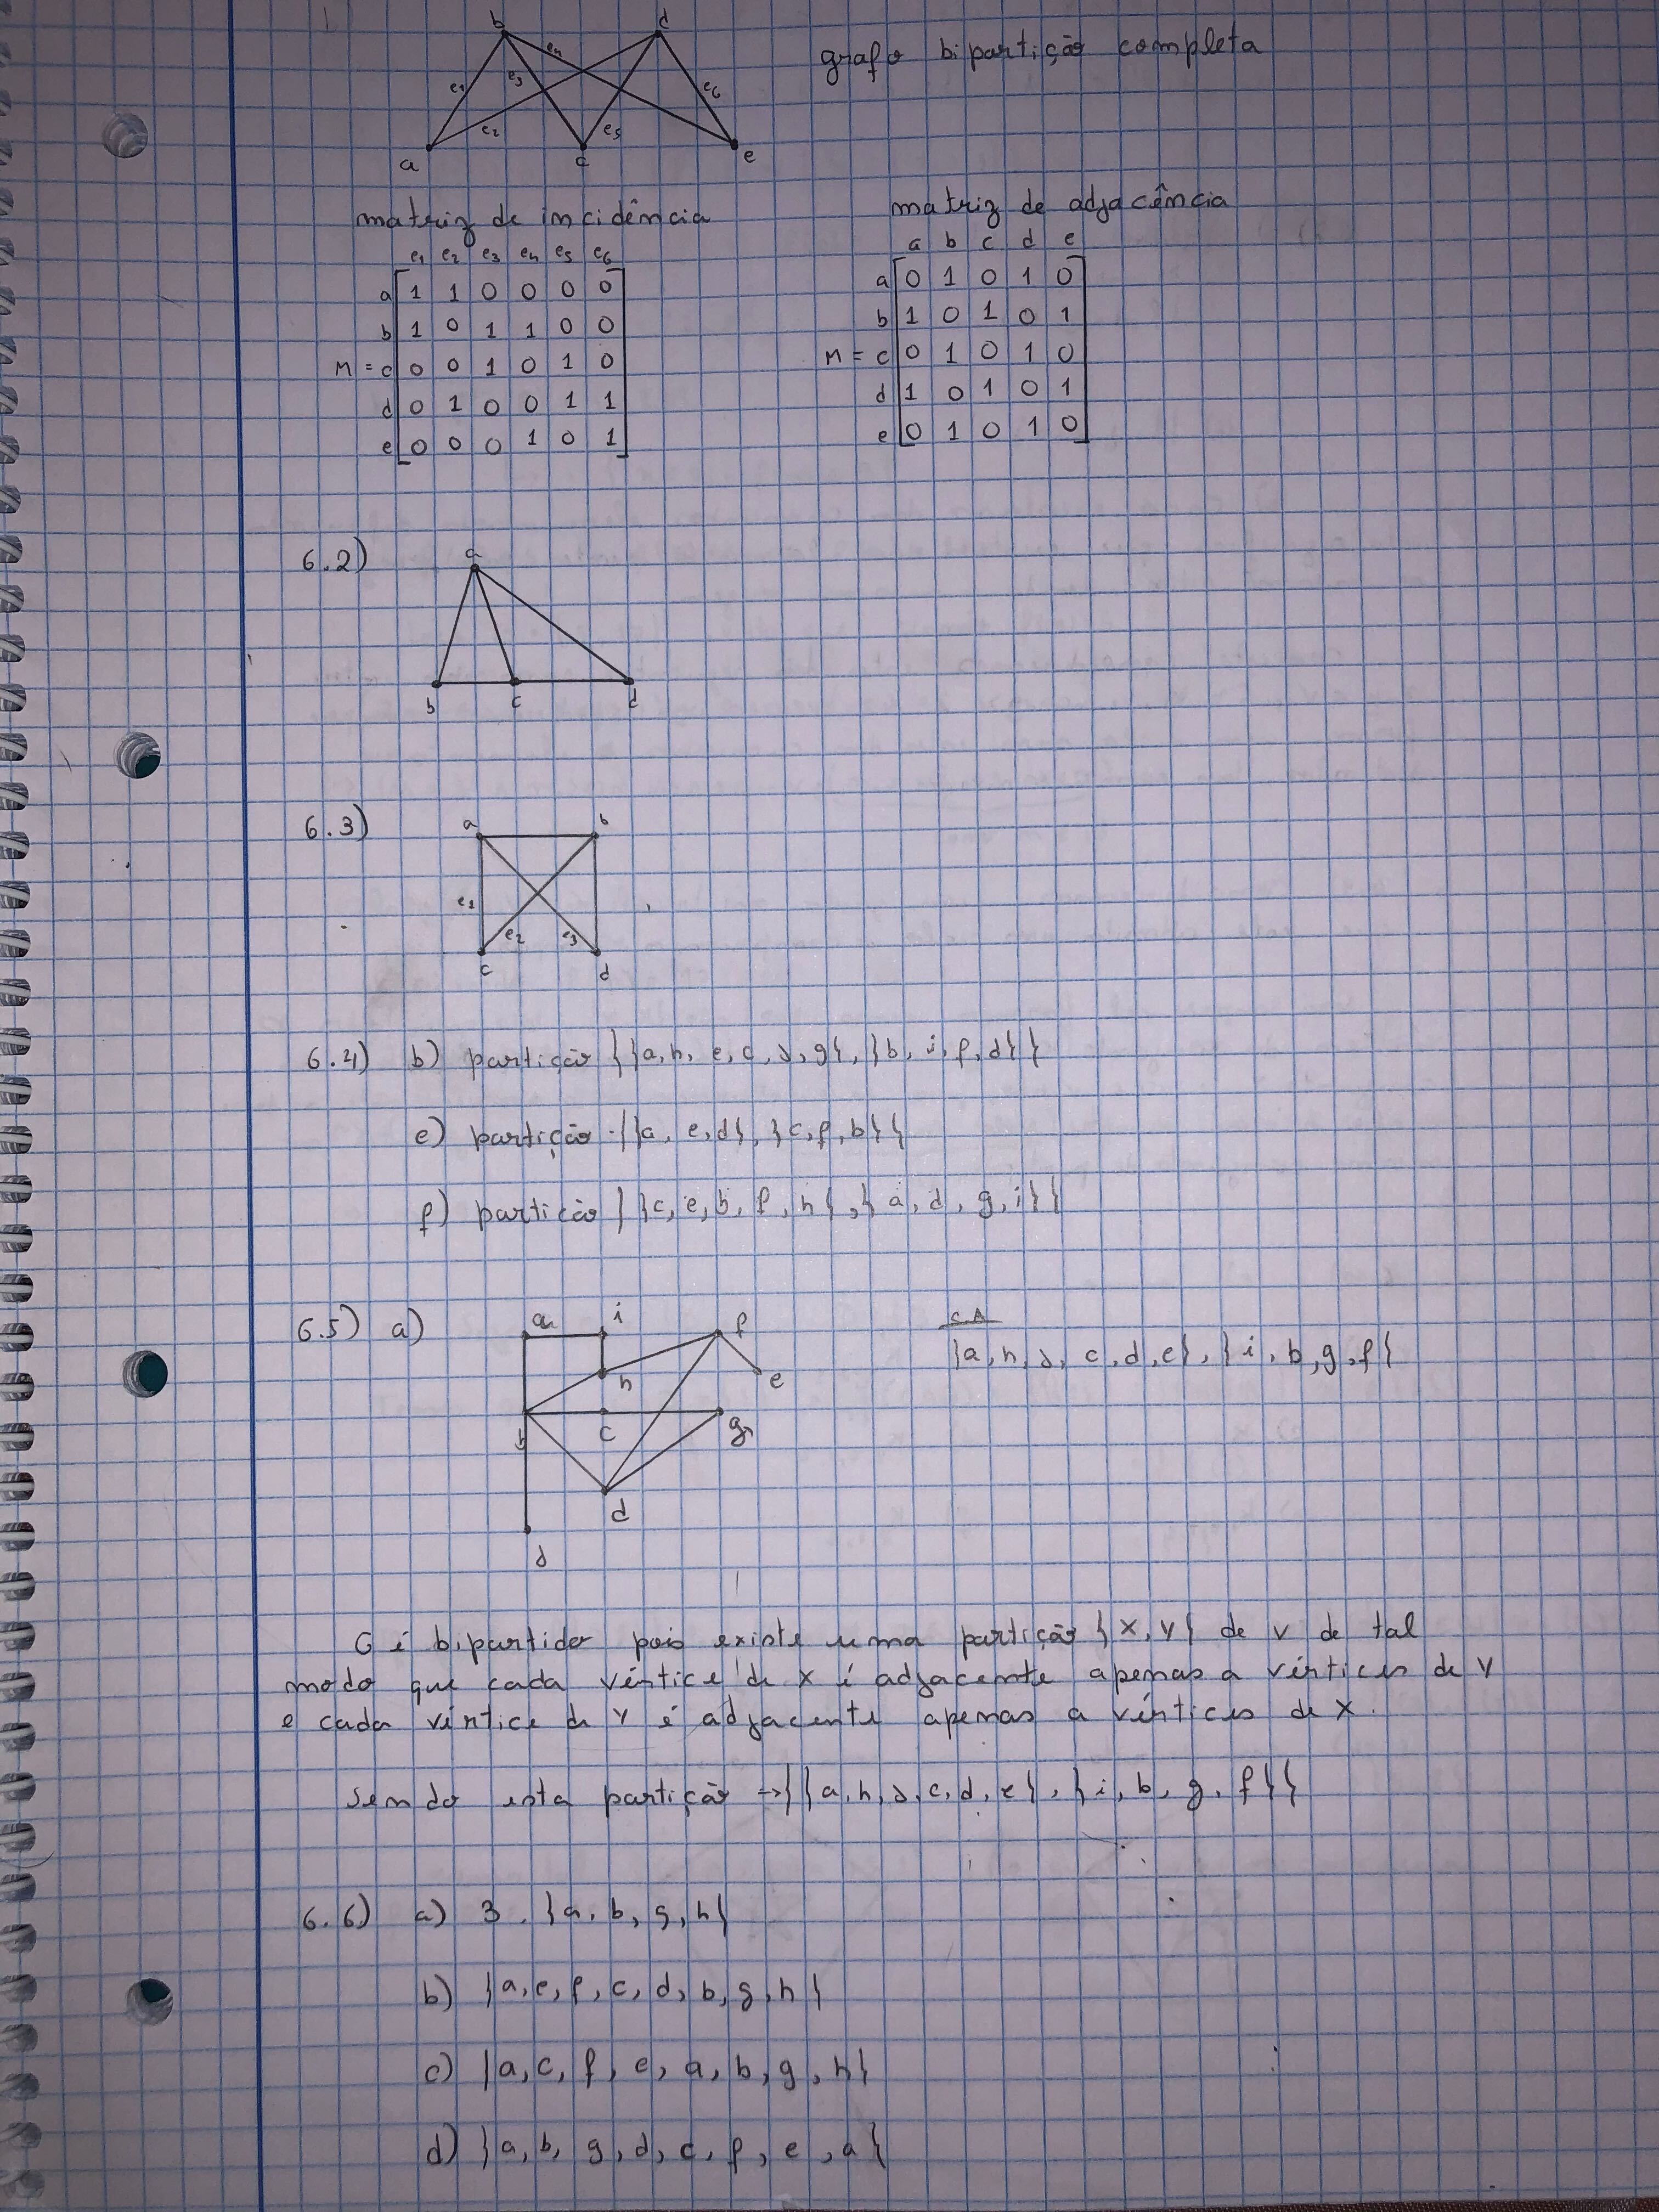 b d
grafo bipartição completa
e1 e3 e4 e6
e2 e5
a c e
matriz de incidência
e1 e2 e3 e4 e5 e6
a 1 1 0 0 0 0
b 1 0 1 1 0 0
M = c 0 0 1 0 1 0
d 0 1 0 0 1 1
e 0 0 0 1 0 1
matriz de adjacência
a b c d e
a 0 1 0 1 0
b 1 0 1 0 1
M = c 0 1 0 1 0
d 1 0 1 0 1
e 0 1 0 1 0
6.2)
a
b c d
6.3)
a b
e1
e2 e3
c d
6.4) b) partição {{a, h, e, c, j, g}, {b, i, f, d}}
e) partição {{a, e, d}, {c, f, b}}
f) partição {{c, e, b, f, h}, {a, d, g, i}}
6.5) a)
a i f
h e
b c g
d
j
C.A
{a, h, j, c, d, e}, {i, b, g, f}
G é bipartido pois existe uma partição {X, Y} de V de tal
modo que cada vértice de X é adjacente apenas a vértices de Y
e cada vértice de Y é adjacente apenas a vértices de X.
Sendo esta partição → {{a, h, j, c, d, e}, {i, b, g, f}}
6.6) a) 3. {a, b, g, h}
b) {a, e, f, c, d, b, g, h}
c) {a, c, f, e, a, b, g, h}
d) {a, b, g, d, c, f, e, a}